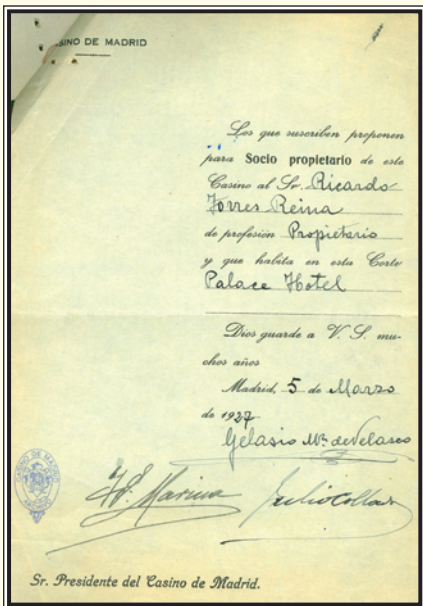 CASINO DE MADRID
Los que suscriben proponen
para Socio propietario de este
Casino al Sr. Ricardo
Torres Reina
de profesión Propietario
y que habita en esta Corte
Palace Hotel
Dios guarde a V. S. mu-
chos años
Madrid, 5 de Marzo
de 1927
Gelasio Mª. de Velasco
Marina
Julio Collar
CASINO DE MADRID
Sr. Presidente del Casino de Madrid.